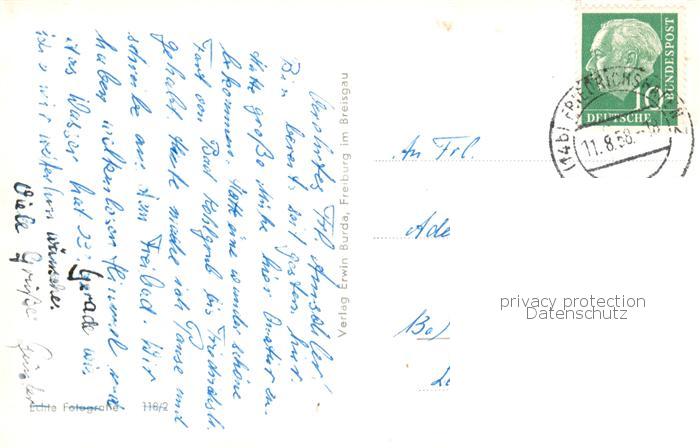 Verehrtes Frl. Amsdiler!
Bin bereits seit gestern hier.
Hatte große Mühe hier Quartier zu
bekommen. Hatte eine wunderschöne
Fahrt von Bad Kohlgrub bis Friedrichsh.
gehabt. Heute mache ich Pause und
schreibe aus dem Freibad. Wir
haben wolkenlosen Himmel und
das Wasser hat 23° Gerade wie
wir weiterhin wünschen
Viele Grüße Günter
Verlag Erwin Burda, Freiburg im Breisgau
Echte Fotografie 118/2
DEUTSCHE BUNDESPOST
10
(14b) FRIEDRICHSHAFEN
11.8.58.
An Frl.
Ade
Ba
privacy protection
Datenschutz